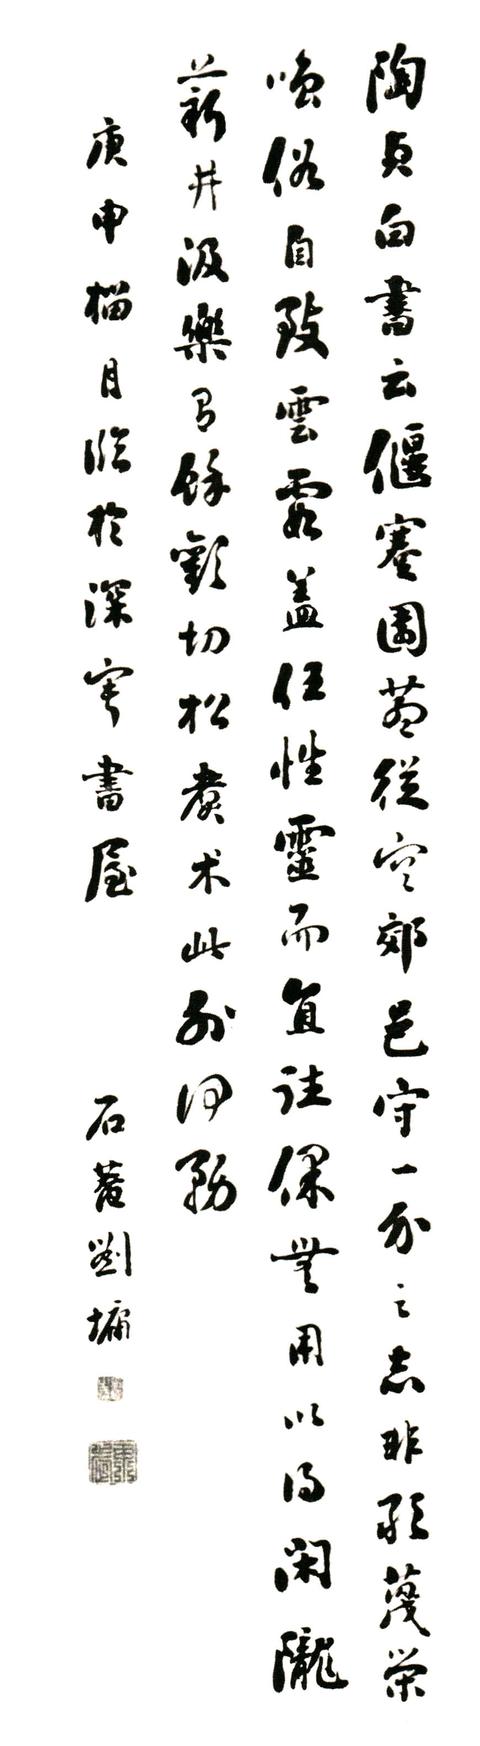 陶貞白書云偃蹇園巷從容郊邑守一介之志非敢蔑榮
嗤俗自致雲霞盖任性靈而直往保無用以得閑隴
薪井汲樂有餘歡切松煮术此外何務
庚申榴月臨於深書屋
石菴劉墉